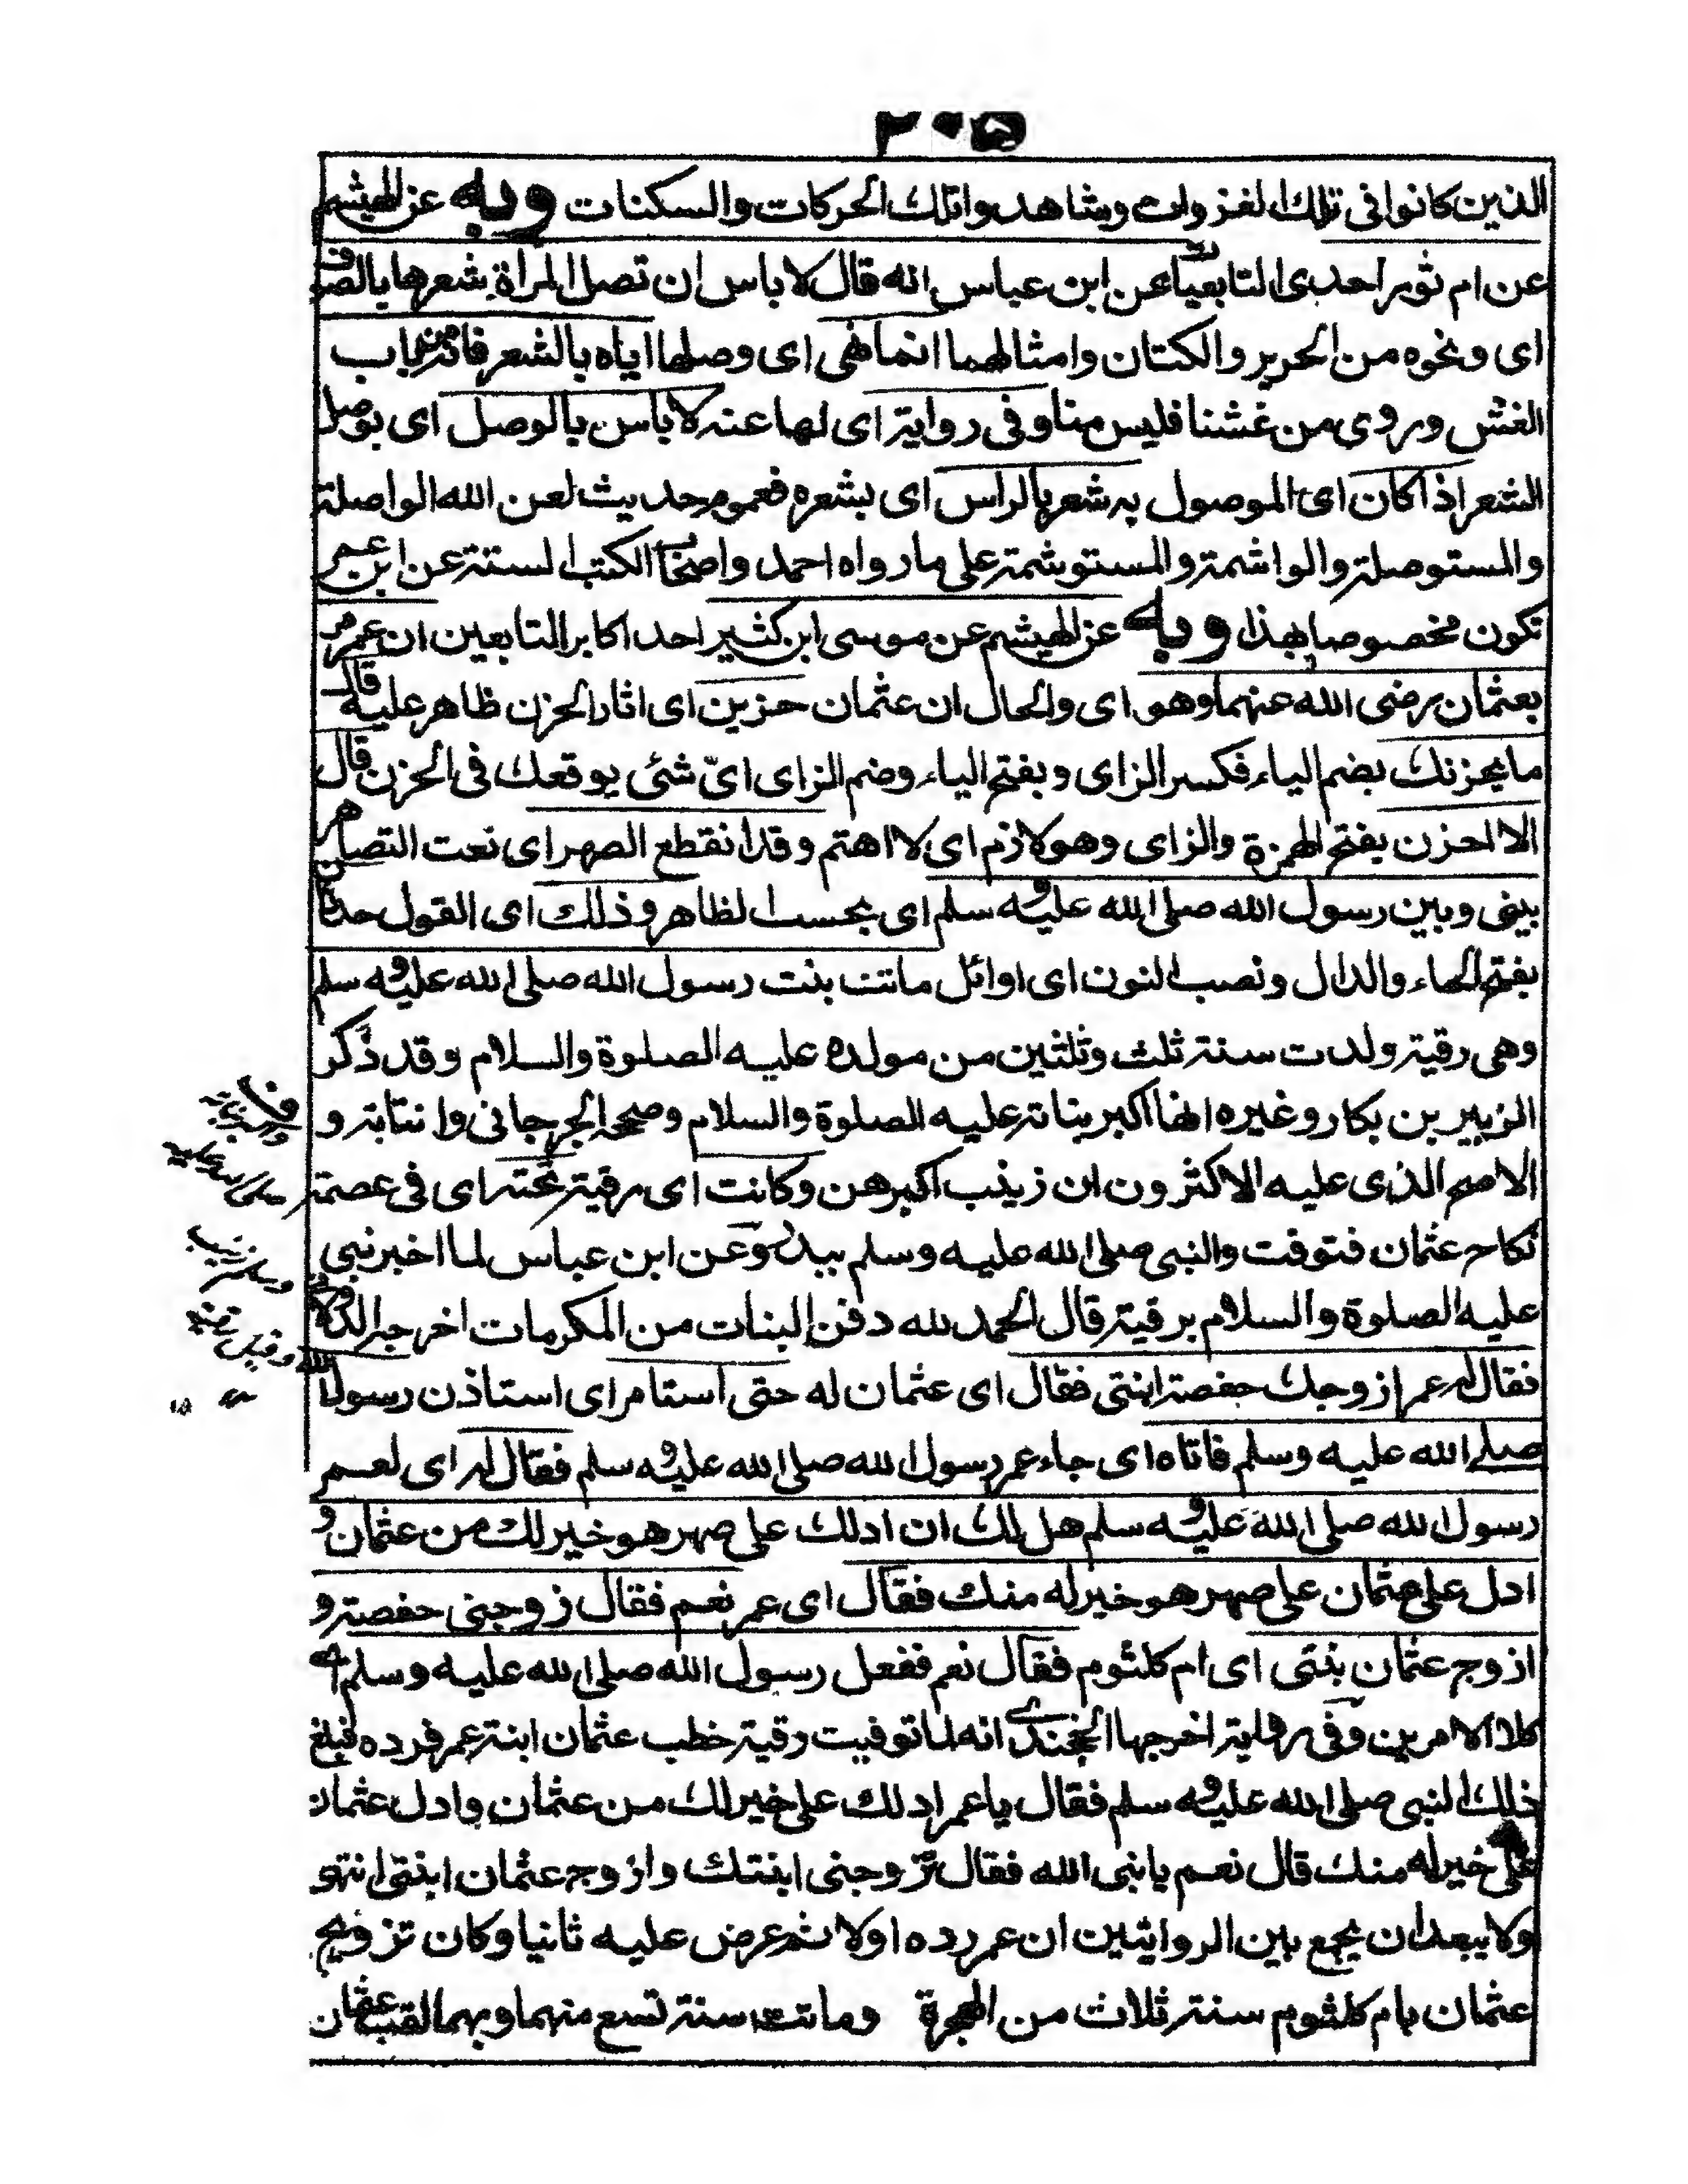 ٢٠٥
الذين كانوا فى تلك الغزوات وشاهدوا تلك الحركات والسكنات وبه عن الهيثم
عن ام ثور احدى التابعيات عن ابن عباس انه قال لا باس ان تصل المراة شعرها بالصوف
اى ونحوه من الحرير والكتان وامثالهما انما نهى اى وصلها اياه بالشعر فانه من باب
الغش وروى من غشنا فليس منا وفى رواية اى لها عنه لا باس بالوصل اى بوصل
الشعر اذا كان اى الموصول به شعر بالراس اى بشعره فعموم حديث لعن الله الواصلة
والمستوصلة والواشمة والمستوشمة على ما رواه احمد واصحاب الكتب الستة عن ابن عمر
تكون مخصوصا بهذا وبه عن الهيثم عن موسى ابن كثير احد اكابر التابعين ان عمر مر
بعثمان رضى الله عنهما وهو اى والحال ان عثمان حزين اى اثار الحزن ظاهر عليه قال
ما يحزنك بضم الياء فكسر الزاى وبفتح الياء وضم الزاى اىّ شئى يوقعك فى الحزن قال
الا احزن بفتح الهمزة والزاى وهو لازم اى لا اهتم وقد انقطع الصهر اى نعت التصاهر
بينى وبين رسول الله صلى الله عليه وسلم اى بحسب الظاهر وذلك اى القول حدثان
بفتح الهاء والدال ونصب النون اى اوائل ماتت بنت رسول الله صلى الله عليه وسلم
وهى رقية ولدت سنة ثلث وثلثين من مولده عليه الصلوة والسلام وقد ذكر
الزبير بن بكار وغيره انها اكبر بناته عليه الصلوة والسلام وصححه الجرجانى وا نتابة و
الاصح الذى عليه الاكثرون ان زينب اكبرهن وكانت اى رقية تحته اى فى عصمة
نكاح عثمان فتوقت والنبى صلى الله عليه وسلم ببدر وعن ابن عباس لما اخبر نبى
عليه الصلوة والسلام برقية قال الحمد لله دفن البنات من المكرمات اخرجه الدولابى
فقال له عمر ازوجك حفصة ابنتى فقال اى عثمان له حتى استامر اى استاذن رسول الله
صلى الله عليه وسلم فاتاه اى جاء عمر رسول الله صلى الله عليه وسلم فقال له اى لعمر
رسول الله صلى الله عليه وسلم هل لك ان ادلك على صهر هو خير لك من عثمان و
ادل على عثمان على صهر هو خير له منك فقال اى عمر نعم فقال زوجنى حفصة و
ازوج عثمان بنتى اى ام كلثوم فقال نعم ففعل رسول الله صلى الله عليه وسلم اى
كلا الامرين وفى رواية اخرجها الخجندى انه لما توفيت رقية خطب عثمان ابنة عمر فرده فبلغ
ذلك النبى صلى الله عليه وسلم فقال يا عمر ادلك على خير لك من عثمان وادل عثمان
على خير له منك قال نعم يا نبى الله فقال تزوجنى ابنتك وازوج عثمان ابنتى انتهى
ولا يبعد ان يجمع بين الروايتين ان عمر رده اولا ثم عرض عليه ثانيا وكان تزويج
عثمان بام كلثوم سنة ثلاث من الهجرة وماتت سنة تسع منهما وبهما لقب عثمان